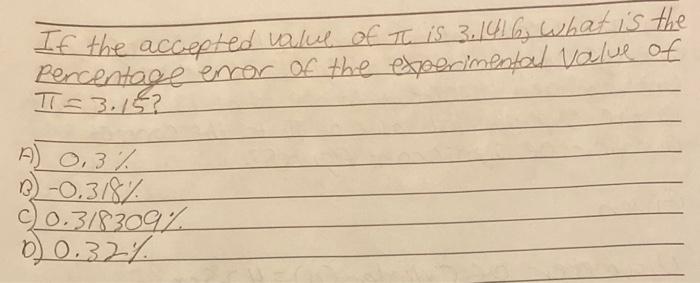 If the accepted value of π is 3.1416, what is the
percentage error of the experimental value of
π = 3.15?
A) 0.3%
B) -0.318%
C) 0.318309%
D) 0.32%